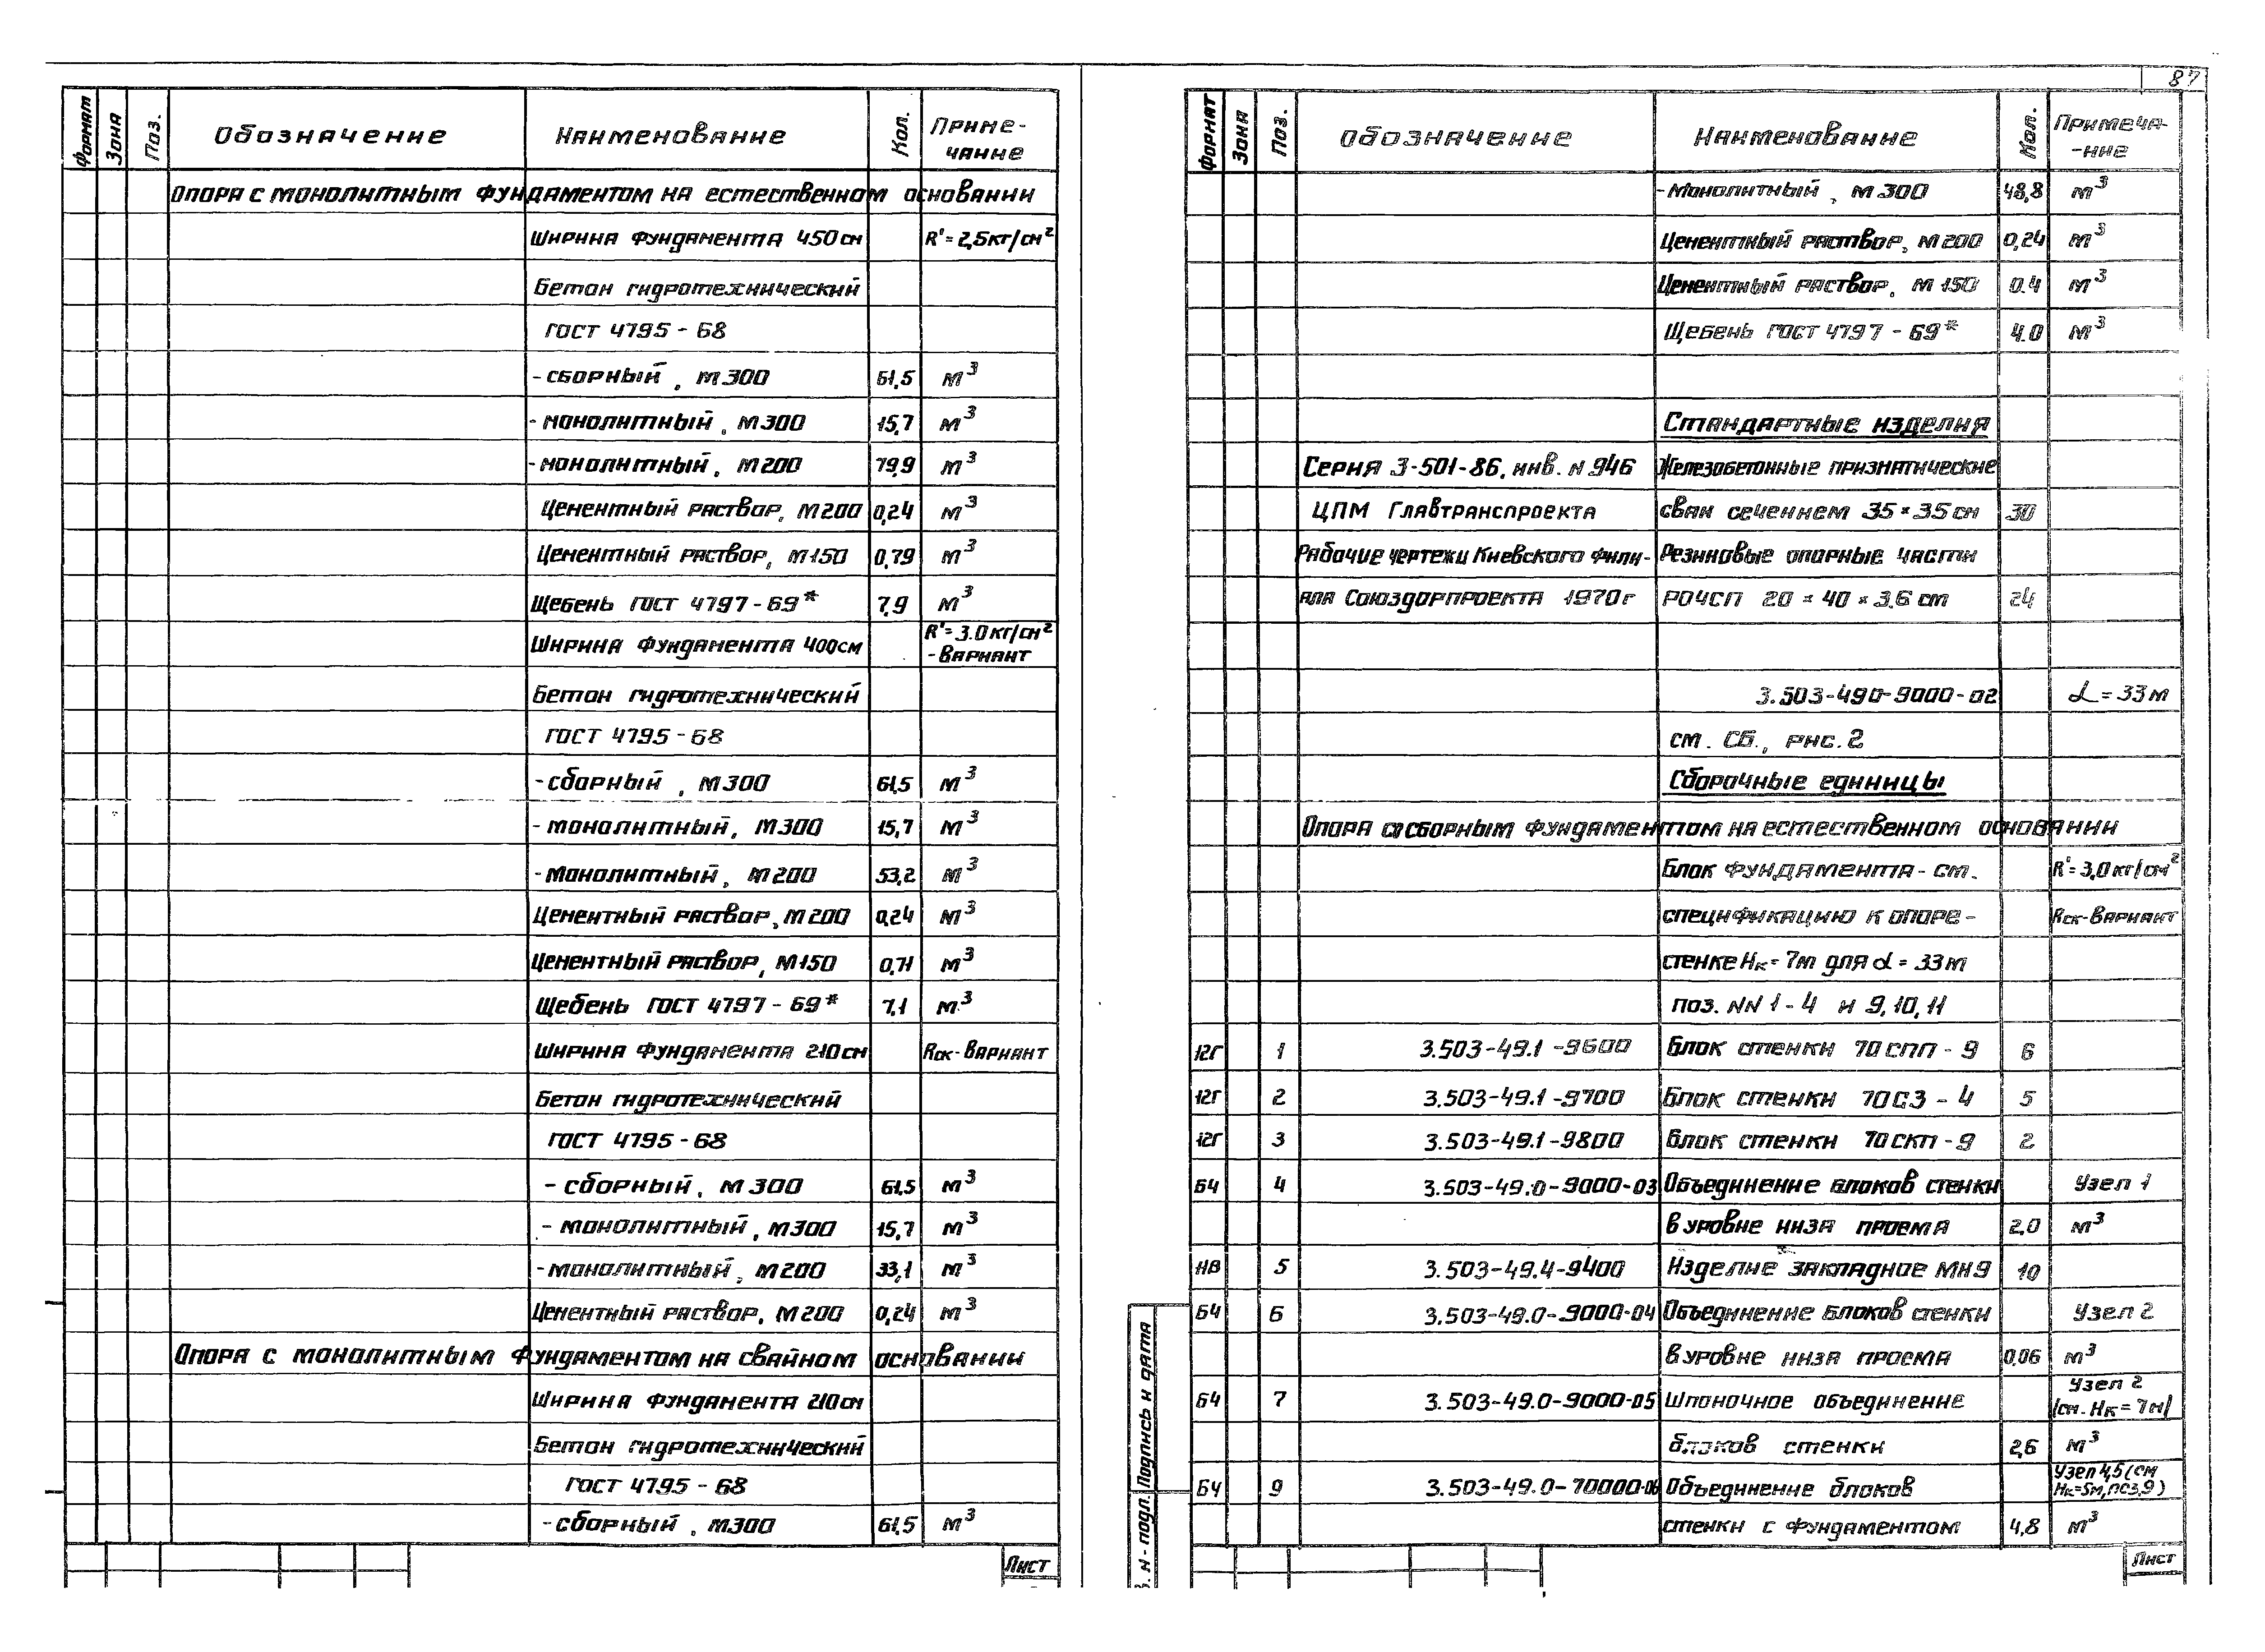 87
Формат Зона Поз. Обозначение Наименование Кол. Приме-
чание
Опора с монолитным фундаментом на естественном основании
Ширина фундамента 450 см R' = 2,5 кг/см²
Бетон гидротехнический
ГОСТ 4795 - 68
- сборный, М300 61,5 м³
- монолитный, М300 15,7 м³
- монолитный, М200 79,9 м³
Цементный раствор, М200 0,24 м³
Цементный раствор, М150 0,79 м³
Щебень ГОСТ 4797 - 69* 7,9 м³
Ширина фундамента 400 см R' = 3.0 кг/см²
- вариант
Бетон гидротехнический
ГОСТ 4795 - 68
- сборный, М300 61,5 м³
- монолитный, М300 15,7 м³
- Монолитный, М200 53,2 м³
Цементный раствор, М200 0,24 м³
Цементный раствор, М150 0,71 м³
Щебень ГОСТ 4797 - 69* 7,1 м³
Ширина фундамента 210 см Rск - вариант
Бетон гидротехнический
ГОСТ 4795 - 68
- сборный, М300 61,5 м³
- монолитный, М300 15,7 м³
- монолитный, М200 33,1 м³
Цементный раствор, М200 0,24 м³
Опора с монолитным фундаментом на свайном основании
Ширина фундамента 210 см
Бетон гидротехнический
ГОСТ 4795 - 68
- сборный, М300 61,5 м³
Лист
Формат Зона Поз. Обозначение Наименование Кол. Примеча-
-ние
- Монолитный, М300 48,8 м³
Цементный раствор, М200 0,24 м³
Цементный раствор, М150 0.4 м³
Щебень ГОСТ 4797 - 69* 4.0 м³
Стандартные изделия
Серия 3-501-86, инв. N 946 Железобетонные призматические
ЦПМ Главтранспроекта сваи сечением 35 × 35 см 30
Рабочие чертежи Киевского фили- Резиновые опорные части
ала Союздорпроекта 1970 г РОЧСП 20 × 40 × 3.6 см 24
3.503-490-9000-02 L = 33 м
см. СБ., рис. 2
Сборочные единицы
Опора со сборным фундаментом на естественном основании
Блок фундамента - см. R' = 3,0 кг/см²
спецификацию к опоре - Rск - вариант
стенке Нк = 7м для α = 33 м
поз. NN 1 - 4 и 9, 10, 11
12Г 1 3.503-49.1-9600 Блок стенки 70СПП - 9 6
12Г 2 3.503-49.1-9700 Блок стенки 70СЗ - 4 5
12Г 3 3.503-49.1-9800 Блок стенки 70СКП - 9 2
БЧ 4 3.503-49.0-9000-03 Объединение блоков стенки Узел 1
в уровне низа проема 2,0 м³
НВ 5 3.503-49.4-9400 Изделие закладное МН9 10
БЧ 6 3.503-49.0-9000-04 Объединение блоков стенки Узел 2
в уровне низа проема 0,06 м³
БЧ 7 3.503-49.0-9000-05 Шпоночное объединение Узел 2
(см. Нк = 7м)
блоков стенки 2,6 м³
БЧ 9 3.503-49.0-70000-06 Объединение блоков Узел 4,5 (см
Нк=5м, поз. 9)
стенки с фундаментом 4,8 м³
Подпись и дата
N - подл.
Лист